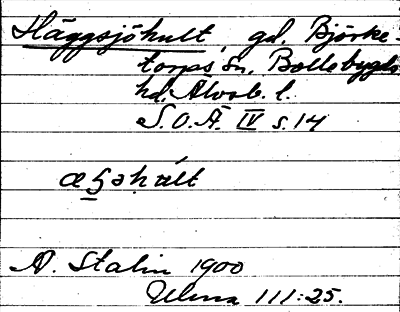 Häggsjöhult, gd, Björke-
torps sn, Bollebygds
hd, Älvsb. l.
S.O.Ä. IV s. 14
N. Stalin 1900
Ulma 111:25.